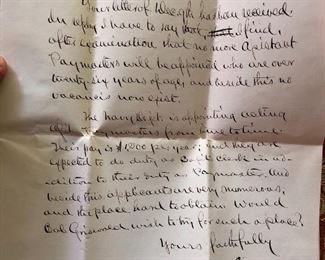 Your letter of Dec 9th has been received
In reply I have to say that, I find,
after examination that no more Assistant
Paymasters will be appointed who are over
twenty six years of age, and beside this no
vacancies now exist.
The Navy Dept. is appointing acting
asst Paymasters from time to time.
Their pay is $1,000 per year; and they are
expected to do duty as Capt's clerk in ad-
dition to their duty as Paymaster. And
beside this applicants are very numerous,
and the place hard to obtain. Would
Col. Griswold wish to try for such a place?
Yours faithfully